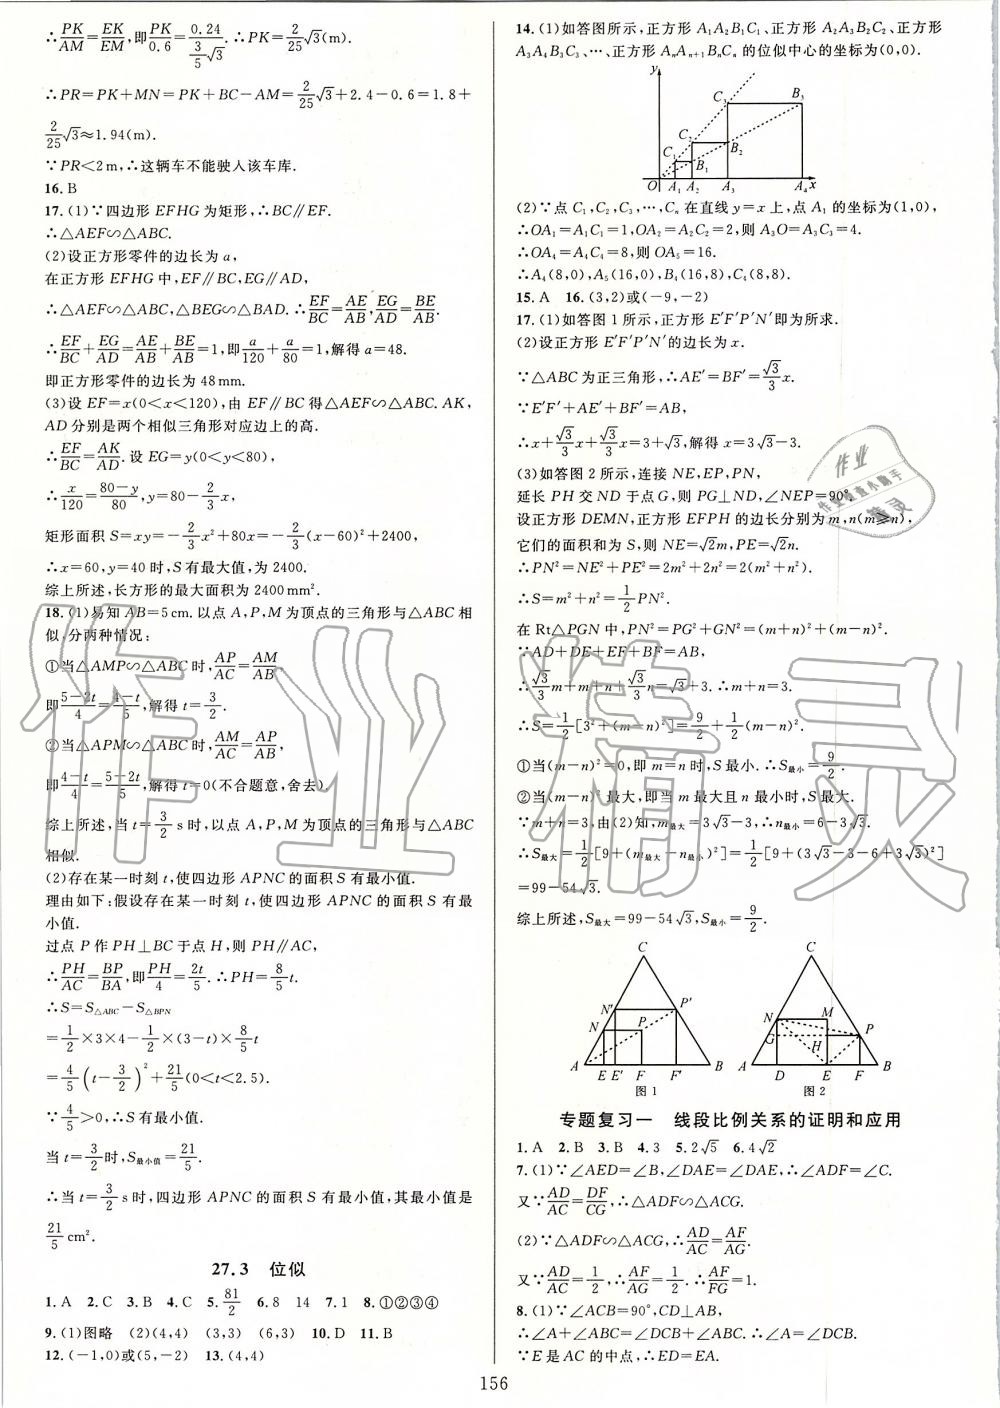 ∴PK/AM=EK/EM,即PK/0.6=0.24/(3/5√3).∴PK=2/25√3(m).
∴PR=PK+MN=PK+BC-AM=2/25√3+2.4-0.6=1.8+
2/25√3≈1.94(m).
∵PR<2m,∴这辆车不能驶人该车库.
16.B
17.(1)∵四边形EFHG为矩形,∴BC∥EF.
∴△AEF∽△ABC.
(2)设正方形零件的边长为a,
在正方形EFHG中,EF∥BC,EG∥AD,
∴△AEF∽△ABC,△BEG∽△BAD.∴EF/BC=AE/AB,EG/AD=BE/AB.
∴EF/BC+EG/AD=AE/AB+BE/AB=1,即a/120+a/80=1,解得a=48.
即正方形零件的边长为48mm.
(3)设EF=x(0<x<120),由EF∥BC得△AEF∽△ABC.AK,
AD分别是两个相似三角形对应边上的高.
∴EF/BC=AK/AD.设EG=y(0<y<80),
∴x/120=(80-y)/80,y=80-2/3x,
矩形面积S=xy=-2/3x²+80x=-2/3(x-60)²+2400,
∴x=60,y=40时,S有最大值,为2400.
综上所述,长方形的最大面积为2400mm².
18.(1)易知AB=5cm.以点A,P,M为顶点的三角形与△ABC相
似,分两种情况:
①当△AMP∽△ABC时,AP/AC=AM/AB,
即(5-2t)/4=(4-t)/5,解得t=3/2.
②当△APM∽△ABC时,AM/AC=AP/AB,
即(4-t)/4=(5-2t)/5,解得t=0(不合题意,舍去).
综上所述,当t=3/2s时,以点A,P,M为顶点的三角形与△ABC
相似.
(2)存在某一时刻t,使四边形APNC的面积S有最小值.
理由如下:假设存在某一时刻t,使四边形APNC的面积S有最
小值.
过点P作PH⊥BC于点H,则PH∥AC,
∴PH/AC=BP/BA,即PH/4=2t/5.∴PH=8/5t.
∴S=S△ABC-S△BPN
=1/2×3×4-1/2×(3-t)×8/5t
=4/5(t-3/2)²+21/5(0<t<2.5).
∵4/5>0,∴S有最小值.
当t=3/2时,S最小值=21/5.
∴当t=3/2s时,四边形APNC的面积S有最小值,其最小值是
21/5cm².
27.3 位似
1.A 2.C 3.B 4.C 5.81/2 6.8 14 7.1 8.①②③④
9.(1)图略 (2)(4,4) (3,3) (6,3) 10.D 11.B
12.(-1,0)或(5,-2) 13.(4,4)
14.(1)如答图所示,正方形A₁A₂B₁C₁、正方形A₂A₃B₂C₂、正方形
A₃A₄B₃C₃、…、正方形AₙAₙ₊₁BₙCₙ的位似中心的坐标为(0,0).
y
C₃ B₃
C₂ B₂
C₁ B₁
O A₁ A₂ A₃ A₄ x
(2)∵点C₁,C₂,C₃,…,Cₙ在直线y=x上,点A₁的坐标为(1,0),
∴OA₁=A₁C₁=1,OA₂=A₂C₂=2,则A₃O=A₃C₃=4.
∴OA₄=A₄C₄=8,则OA₅=16.
∴A₄(8,0),A₅(16,0),B₄(16,8),C₄(8,8).
15.A 16.(3,2)或(-9,-2)
17.(1)如答图1所示,正方形E'F'P'N'即为所求.
(2)设正方形E'F'P'N'的边长为x.
∵△ABC为正三角形,∴AE'=BF'=√3/3x.
∵E'F'+AE'+BF'=AB,
∴x+√3/3x+√3/3x=3+√3,解得x=3√3-3.
(3)如答图2所示,连接NE,EP,PN,
延长PH交ND于点G,则PG⊥ND,∠NEP=90°.
设正方形DEMN,正方形EFPH的边长分别为m,n(m≥n),
它们的面积和为S,则NE=√2m,PE=√2n.
∴PN²=NE²+PE²=2m²+2n²=2(m²+n²).
∴S=m²+n²=1/2PN².
在Rt△PGN中,PN²=PG²+GN²=(m+n)²+(m-n)².
∵AD+DE+EF+BF=AB,
∴√3/3m+m+n+√3/3n=√3+3.∴m+n=3.
∴S=1/2[3²+(m-n)²]=9/2+1/2(m-n)².
①当(m-n)²=0,即m=n时,S最小.∴S最小=9/2.
②当(m-n)²最大,即当m最大且n最小时,S最大.
∵m+n=3,由(2)知,m最大=3√3-3,∴n最小=6-3√3.
∴S最大=1/2[9+(m最大-n最小)²]=1/2[9+(3√3-3-6+3√3)²]
=99-54√3.
综上所述,S最大=99-54√3,S最小=9/2.
C
N' P'
N P
A E E' F F' B
图1
C
N M
G H P
A D E F B
图2
专题复习一 线段比例关系的证明和应用
1.A 2.B 3.B 4.3 5.2√5 6.4√2
7.(1)∵∠AED=∠B,∠DAE=∠DAE,∴∠ADF=∠C.
又∵AD/AC=DF/CG,∴△ADF∽△ACG.
(2)∵△ADF∽△ACG,∴AD/AC=AF/AG.
又∵AD/AC=1/2,∴AF/AG=1/2.∴AF/FG=1.
8.(1)∵∠ACB=90°,CD⊥AB,
∴∠A+∠ABC=∠DCB+∠ABC.∴∠A=∠DCB.
∵E是AC的中点,∴ED=EA.
156
作业精灵